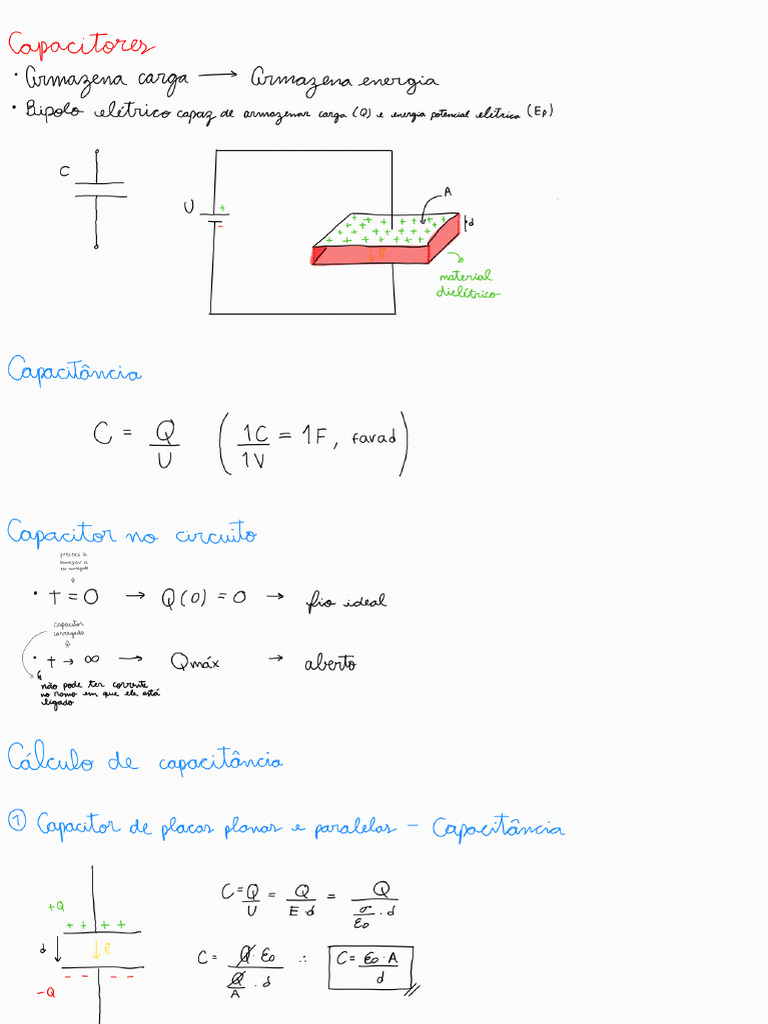 Capacitores
• Armazena carga → Armazena energia
• Bipolo elétrico capaz de armazenar carga (Q) e energia potencial elétrica (Ep)
C
U
+
-
A
d
E
material
dielétrico
Capacitância
C = Q/U (1C/1V = 1F, farad)
Capacitor no circuito
prestes a
começar a
ser carregado
• t = 0 → Q(0) = 0 → fio ideal
capacitor
carregado
• t → ∞ → Qmáx → aberto
não pode ter corrente
no ramo em que ele está
ligado
Cálculo de capacitância
① Capacitor de placas planas e paralelas - Capacitância
+Q
+ + + +
d
E
- - - -
-Q
C = Q/U = Q/(E·d) = Q/(σ/ε0 · d)
C = Q·ε0/(Q/A · d) ∴ C = ε0·A/d